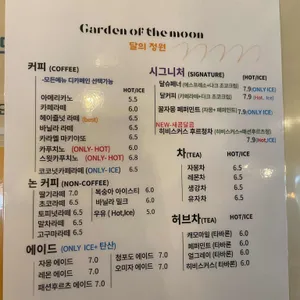 Garden of the moon
달의 정원
커피 (COFFEE)
-모든메뉴 디카페인 선택가능
HOT/ICE
아메리카노 5.5
카페라떼 6.0
헤이즐넛 라떼 6.5
바닐라 라떼 6.5
카라멜 마키아또 6.5
카푸치노 (ONLY- HOT) 6.0
스윗카푸치노 (ONLY- HOT) 6.8
코코넛카페라떼 (ONLY- ICE) 6.5
논 커피 (NON-COFFEE)
딸기라떼 7.0
초코라떼 6.5
토피넛라떼 6.5
말차라떼 6.5
고구마라떼 6.5
복숭아 아이스티 6.0
바닐라 밀크 6.0
우유 ( Hot,Ice) 5.0
에이드 (ONLY ICE+ 탄산)
자몽 에이드 7.0
레몬 에이드 7.0
패션후르츠 에이드 7.0
청포도 에이드 7.0
오미자 에이드 7.0
시그니처 (SIGNATURE) (HOT/ICE)
달슈페너
7.9(ONLY ICE)
달커피
7.9 (Hot, Ice)
꿀자몽 페퍼민트
7.9(ONLY ICE)
NEW-새콤달콤
히비스커스 후르정차
7.9(HOT/ICE)
차(TEA) HOT/ICE
자몽차 6.5
레몬차 6.5
생강차 6.5
유자차 6.5
허브차(TEA) HOT/ICE
캐모마일 (타바론) 6.0
페퍼민트 (타바론) 6.0
얼그레이 (타바론) 6.0
히비스커스( 타바론) 6.0